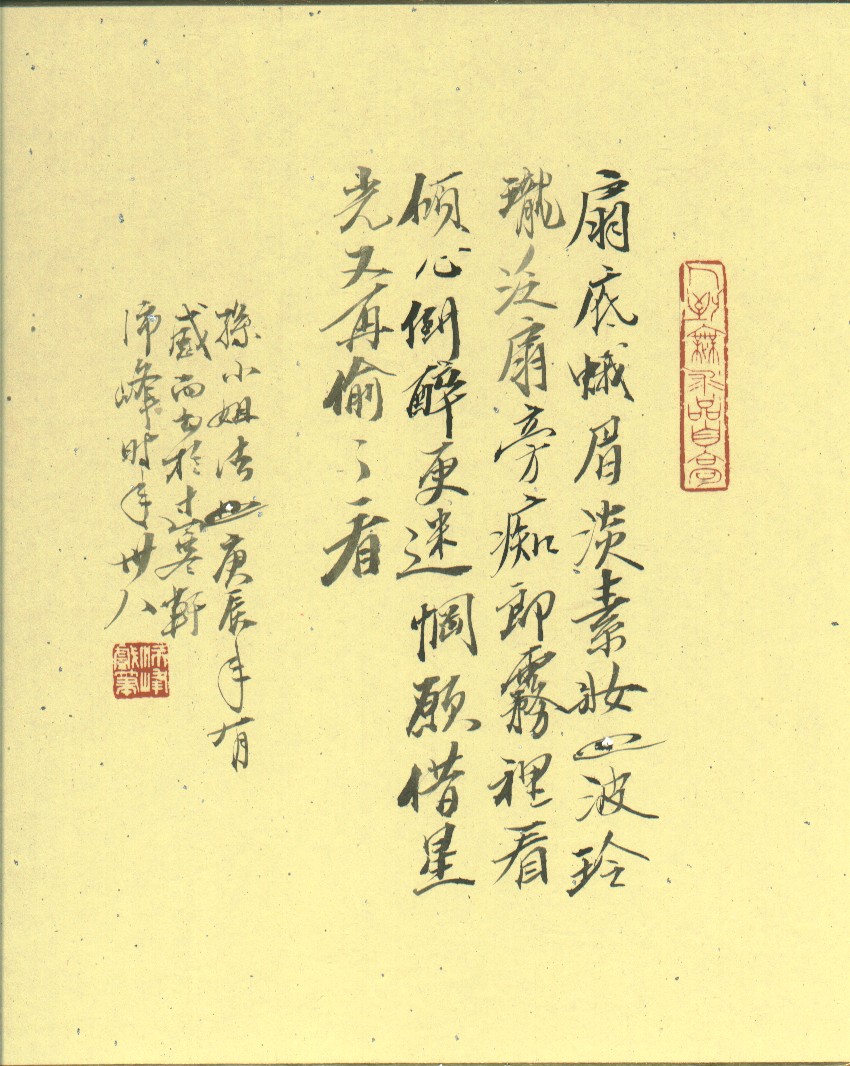 人到無求品自高
扇底蛾眉淡素妝波玲
瓏泛扇旁痴郎霧裡看
傾心倒醉更迷惘願借星
光又再偷々看
孫小姐庚辰年月
感而書於寒軒
沛峰时年卅八